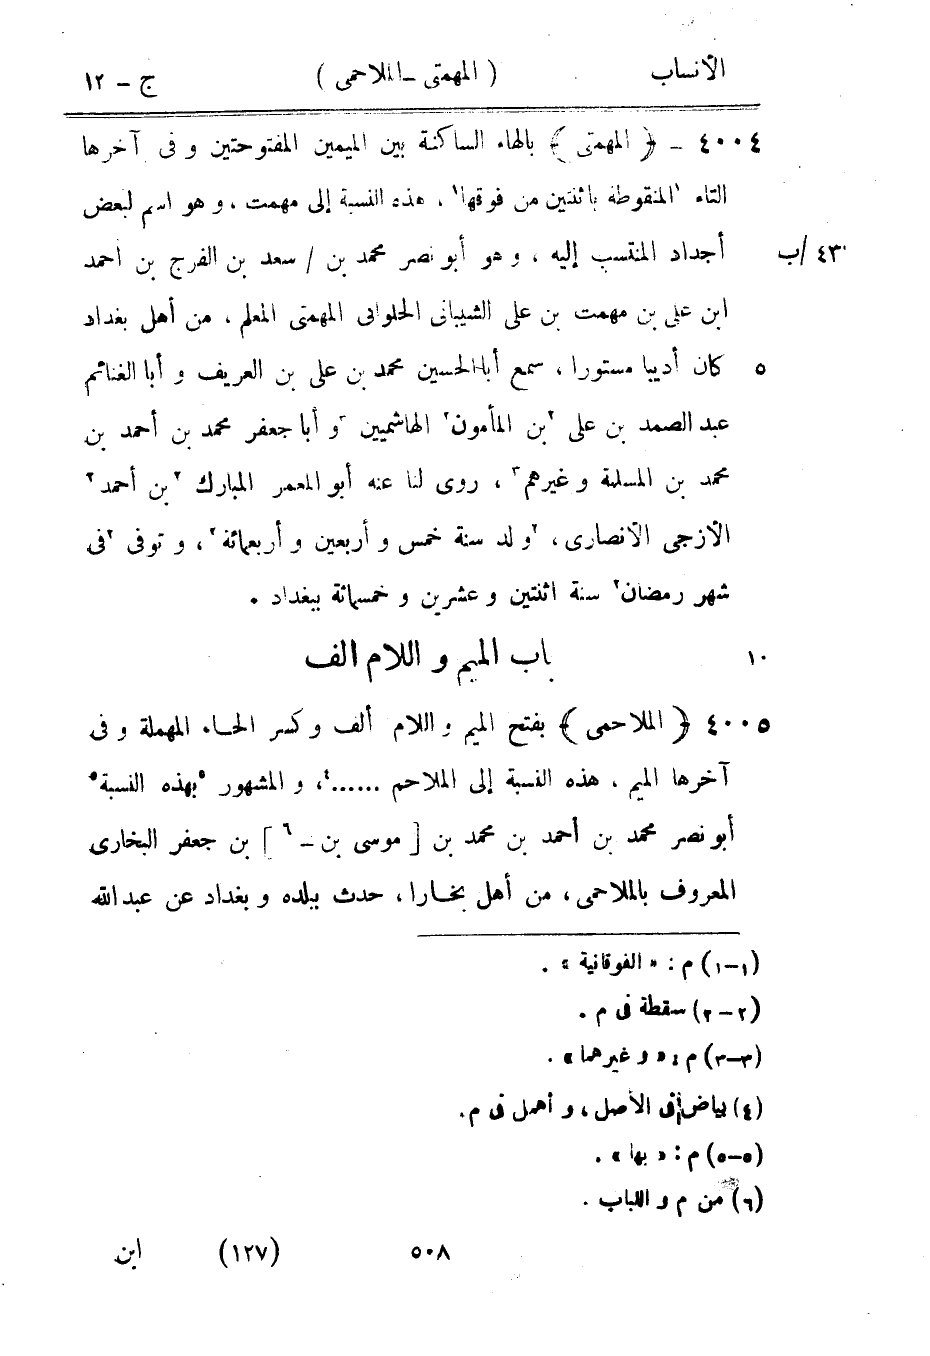 الأنساب ( المهمتى – الملاحمى ) ج – ١٢
٤٠٠٤ – ﴿ المهمتى ﴾ بالهاء الساكنة بين الميمين المفتوحتين و فى آخرها
التاء ١المنقوطة باثنتين من فوقها١ ، هذه النسبة إلى مهمت ، و هو اسم لبعض
٤٣٠/ب أجداد المنتسب إليه ، و هو أبو نصر محمد بن / سعد بن الفرج بن أحمد
ابن على بن مهمت بن على الشيبانى الحلوانى المهمتى المعلم ، من أهل بغداد
٥ كان أديبا مستورا ، سمع أبا الحسين محمد بن على بن العريف و أبا الغنائم
عبد الصمد بن على ٢بن المأمون٢ الهاشميين ٣و أبا جعفر محمد بن أحمد بن
محمد بن المسلمة و غيرهم٣ ، روى لنا عنه أبو المعمر المبارك ٢بن أحمد٢
الأزجى الأنصارى ، ٢و لد سنة خمس و أربعين و أربعمائة٢ ، و توفى ٢فى
شهر رمضان٢ سنة اثنتين و عشرين و خمسمائة ببغداد .
١٠ باب الميم و اللام الف
٤٠٠٥ ﴿ الملاحمى ﴾ بفتح الميم و اللام ألف و كسر الحاء المهملة و فى
آخرها الميم ، هذه النسبة إلى الملاحم ......٤ ، و المشهور ٥بهذه النسبة٥
أبو نصر محمد بن أحمد بن محمد بن [ موسى بن – ٦ ] بن جعفر البخارى
المعروف بالملاحمى ، من أهل بخارا ، حدث ببلده و بغداد عن عبد الله
(١–١) م : « الفوقانية » .
(٢–٢) سقطة فى م .
(٣–٣) م : « و غيرهما » .
(٤) بياض فى الأصل ، و أهمل فى م .
(٥–٥) م : « بها » .
(٦) من م و اللباب .
٥٠٨ (١٢٧) ابن